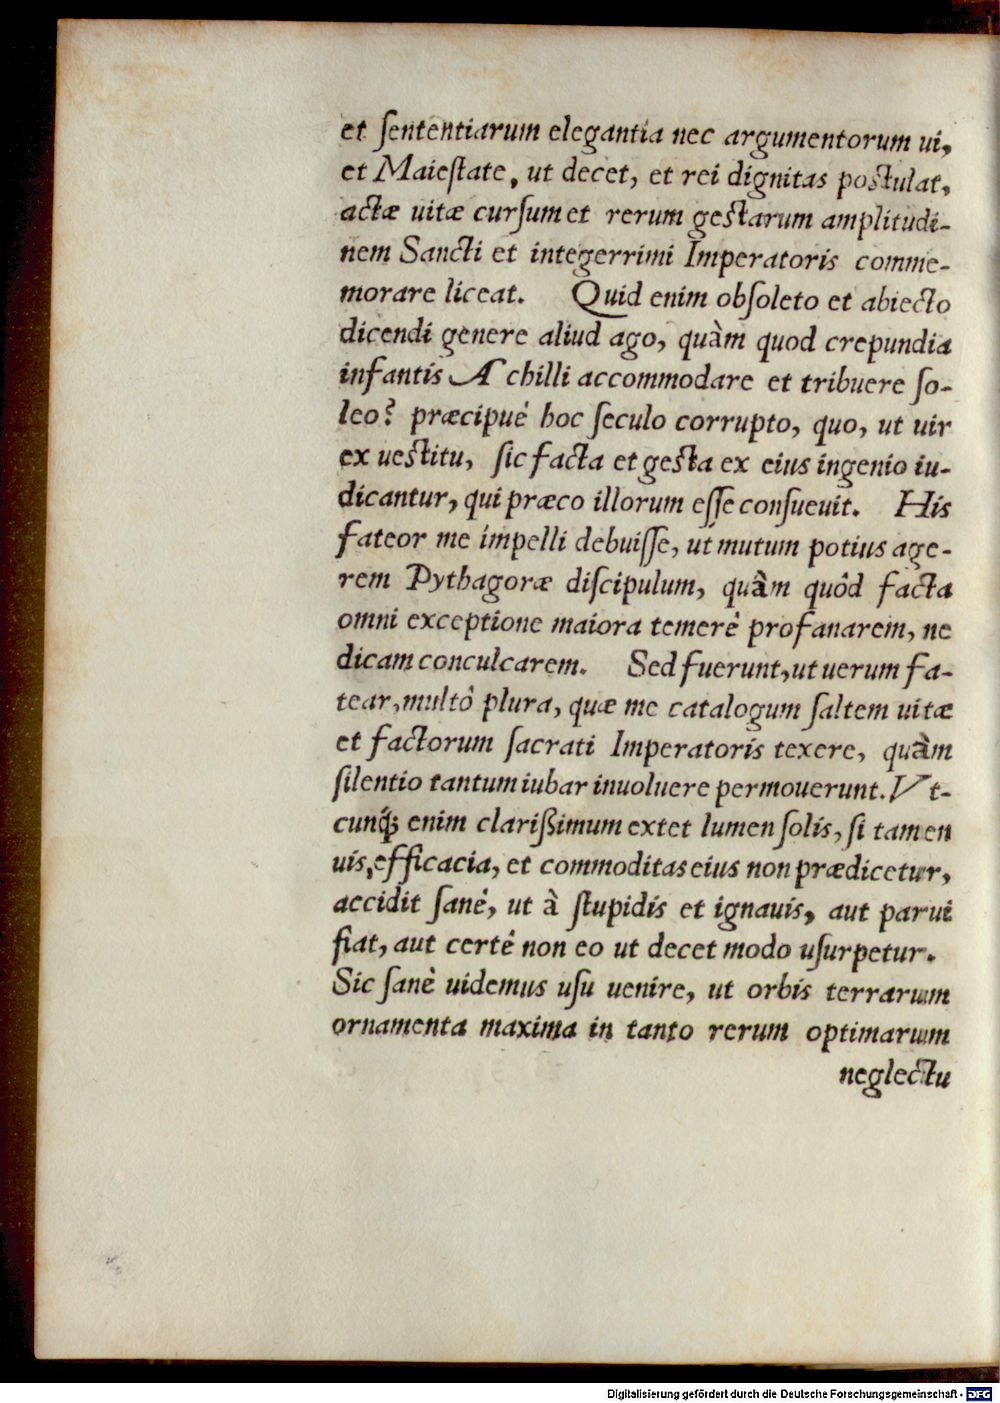 et ſententiarum elegantia nec argumentorum ui,
et Maieſtate, ut decet, et rei dignitas poſtulat,
actæ uitæ curſum et rerum geſtarum amplitudi-
nem Sancti et integerrimi Imperatoris comme-
morare liceat. Quid enim obſoleto et abiecto
dicendi genere aliud ago, quàm quod crepundia
infantis Achilli accommodare et tribuere ſo-
leo? præcipuè hoc ſeculo corrupto, quo, ut uir
ex ueſtitu, ſic facta et geſta ex eius ingenio iu-
dicantur, qui præco illorum eſſe conſueuit. His
fateor me impelli debuiſſe, ut mutum potius age-
rem Pythagoræ diſcipulum, quàm quòd facta
omni exceptione maiora temerè profanarem, ne
dicam conculcarem. Sed fuerunt, ut uerum fa-
tear, multò plura, quæ me catalogum ſaltem uitæ
et factorum ſacrati Imperatoris texere, quàm
ſilentio tantum iubar inuoluere permouerunt. Vt-
cunq́; enim clarißimum extet lumen ſolis, ſi tamen
uis, efficacia, et commoditas eius non prædicetur,
accidit ſanè, ut à ſtupidis et ignauis, aut parui
fiat, aut certè non eo ut decet modo uſurpetur.
Sic ſanè uidemus uſu uenire, ut orbis terrarum
ornamenta maxima in tanto rerum optimarum
neglectu
Digitalisierung gefördert durch die Deutsche Forschungsgemeinschaft - DFG